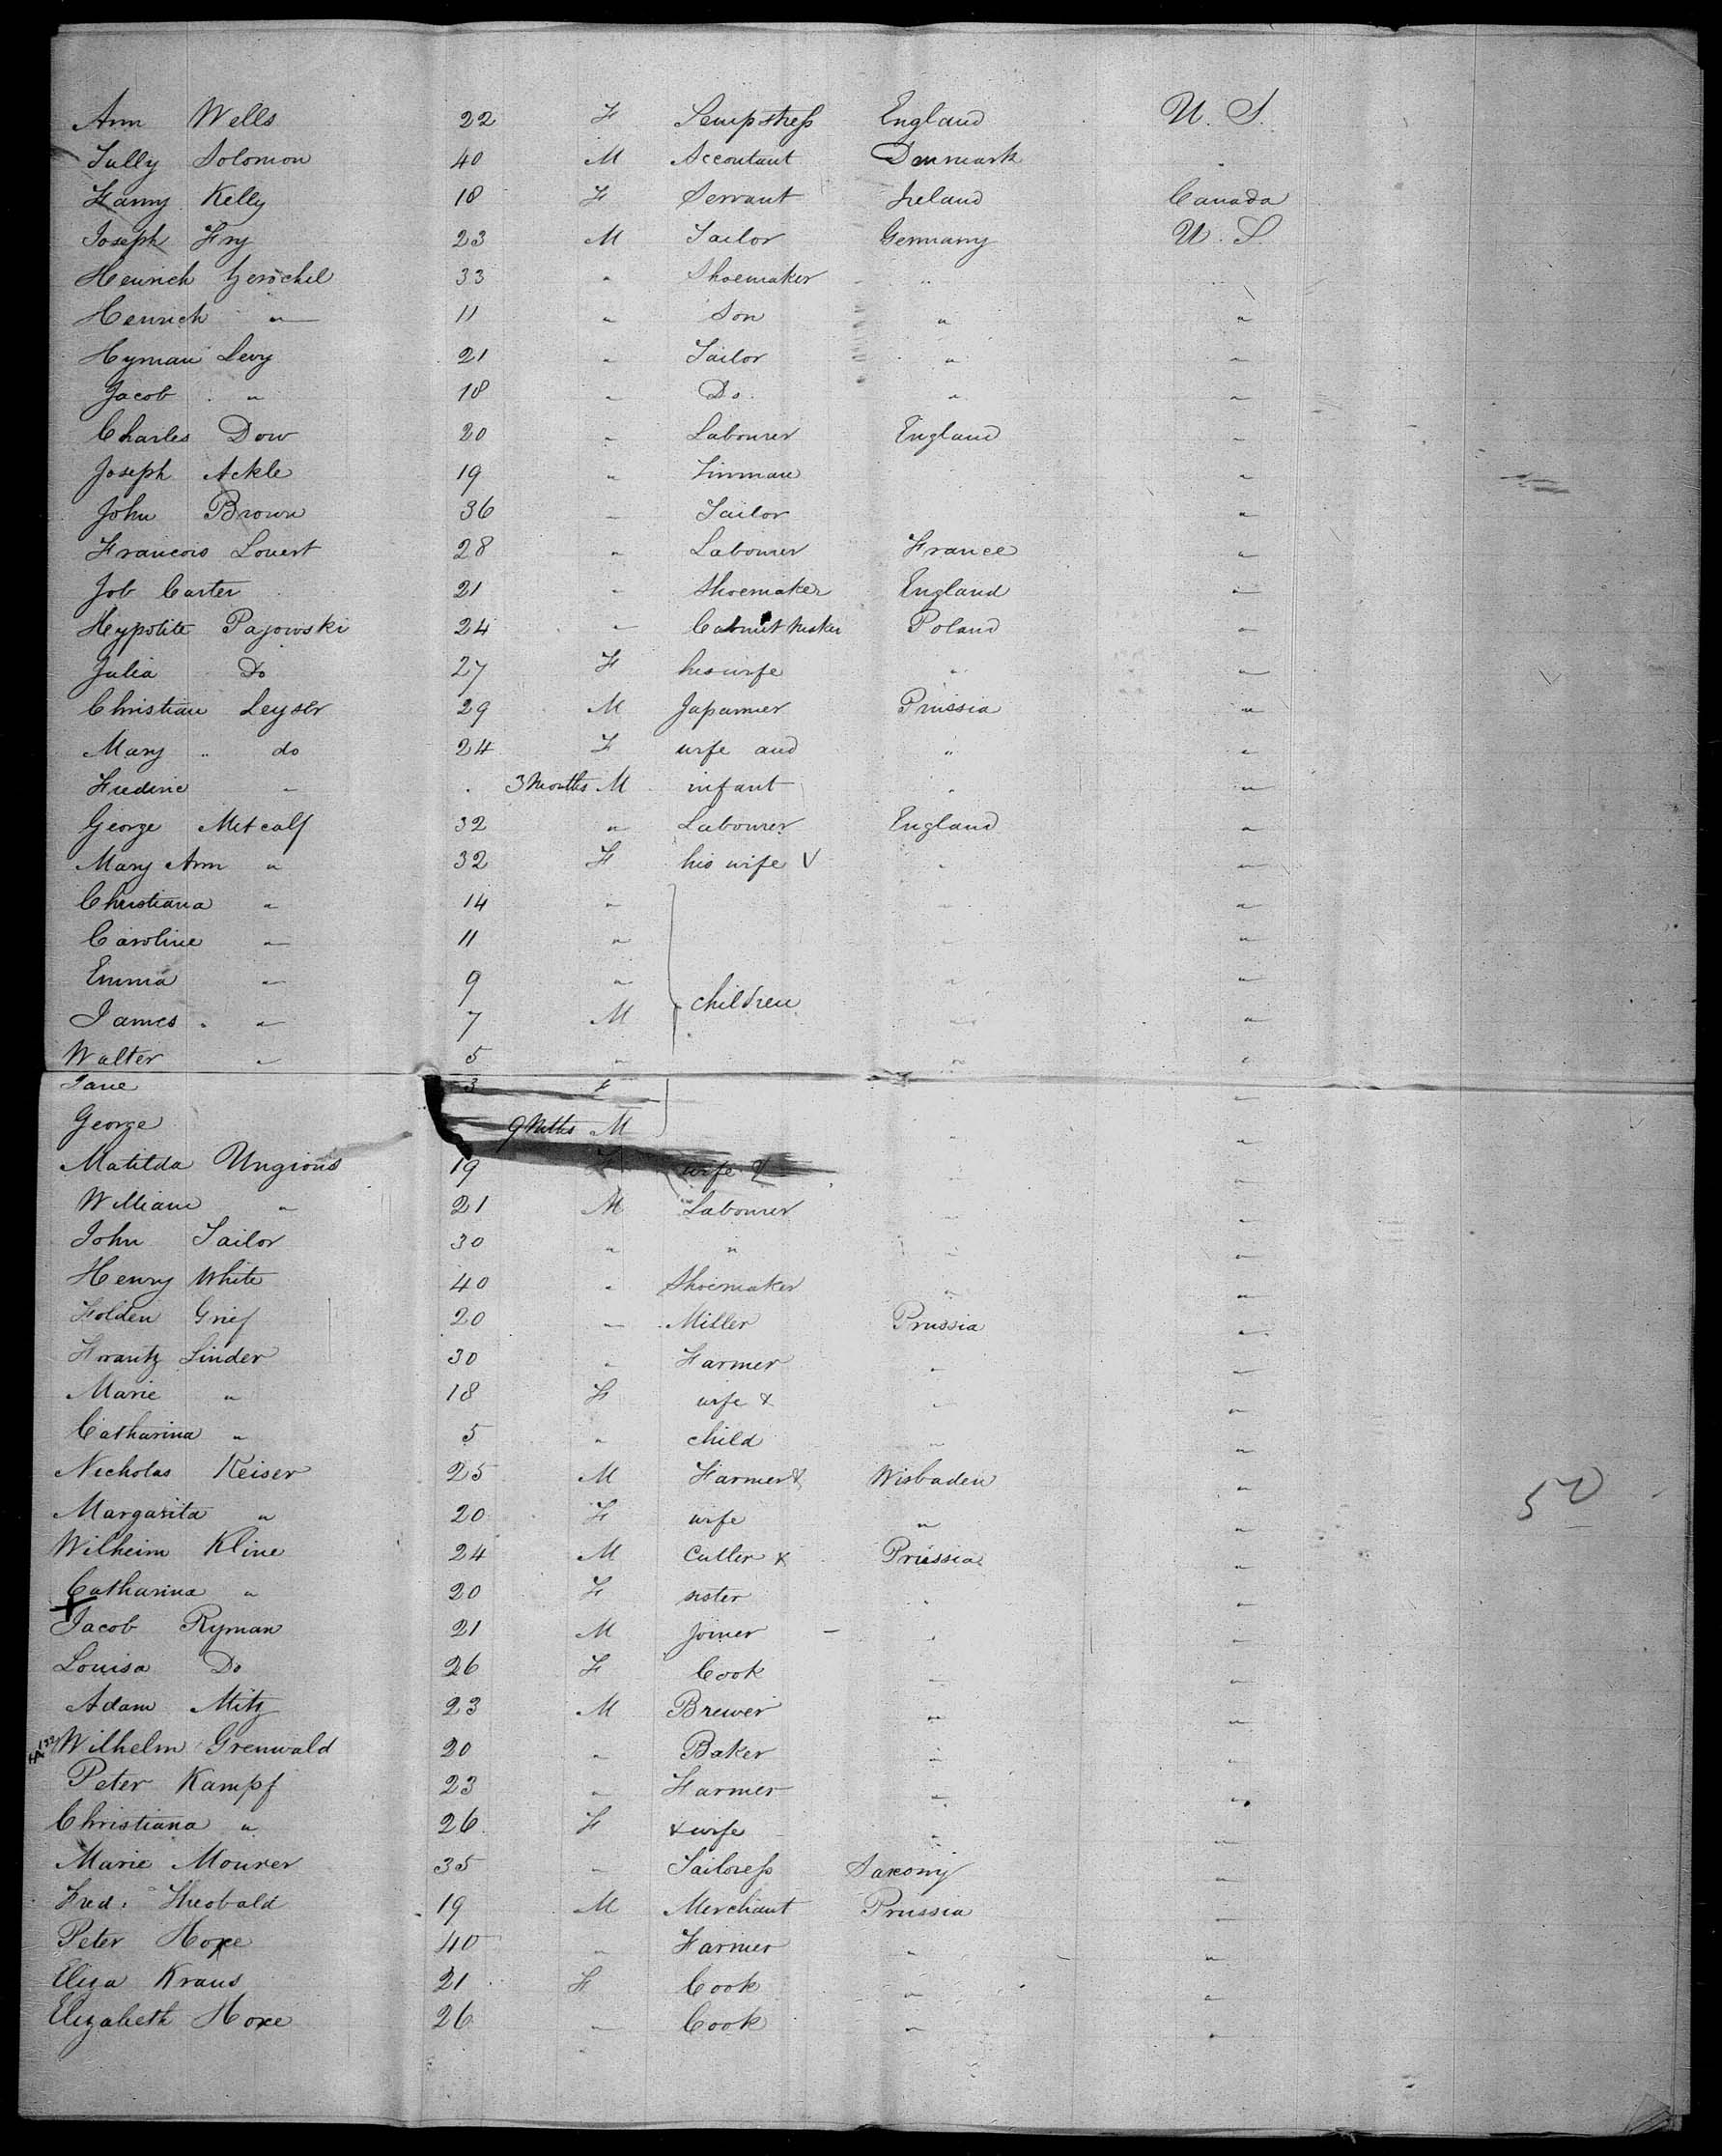 Ann Wells 22 F Sempstress England U. S.
Tully Solomon 40 M Accoutant Denmark "
Fanny Kelly 18 F Servant Ireland Canada
Joseph Fry 23 M Tailor Germany U. S.
Heinrich Gerschel 33 " Shoemaker "
Henrich " 11 " Son " "
Hyman Levy 21 " Tailor " "
Jacob " 18 " Do. " "
Charles Dow 20 " Labourer England "
Joseph Ackle 19 " Tinman "
John Brown 36 " Tailor "
Francois Louert 28 " Labourer France "
Job Carter 21 " Shoemaker England "
Hypolite Pajowski 24 " Cabinet Maker Poland "
Julia Do 27 F his wife " "
Christian Leyser 29 M Japanner Prussia "
Mary " do 24 F wife and " "
Frederic " 3 Months M infant " "
George Metcalf 32 " Labourer England "
Mary Ann " 32 F his wife & " "
Christiana " 14 " " "
Caroline " 11 " " "
Emma " 9 " " "
James " 7 M children " "
Walter " 5 " " "
Jane 3 F "
George 9 Mths M " "
Matilda Ungious 19 F wife & " "
William " 21 M Labourer " "
John Tailor 30 " " " "
Henry White 40 " Shoemaker " "
Holden Grief 20 " Miller Prussia "
Frantz Linder 30 " Farmer " "
Marie " 18 F wife & " "
Catharina " 5 " child " "
Nicholas Keiser 25 M Farmer & Wisbaden "
Margarita " 20 F wife " "
Wilheim Kline 24 M Cutler & Prussia "
Catharina " 20 F sister " "
Jacob Ryman 21 M Joiner " "
Louisa Do 26 F Cook " "
Adam Mitz 23 M Brewer " "
Wilhelm Grenwald 20 " Baker " "
Peter Kampf 23 " Farmer " "
Christiana " 26 F & wife " "
Marie Mourer 35 " Tailoress Saxony "
Fred. Theobald 19 M Merchant Prussia "
Peter Hoxe 40 " Farmer " "
Eliza Kraus 21 F Cook " "
Elizabeth Hoxe 26 " Cook " "
50